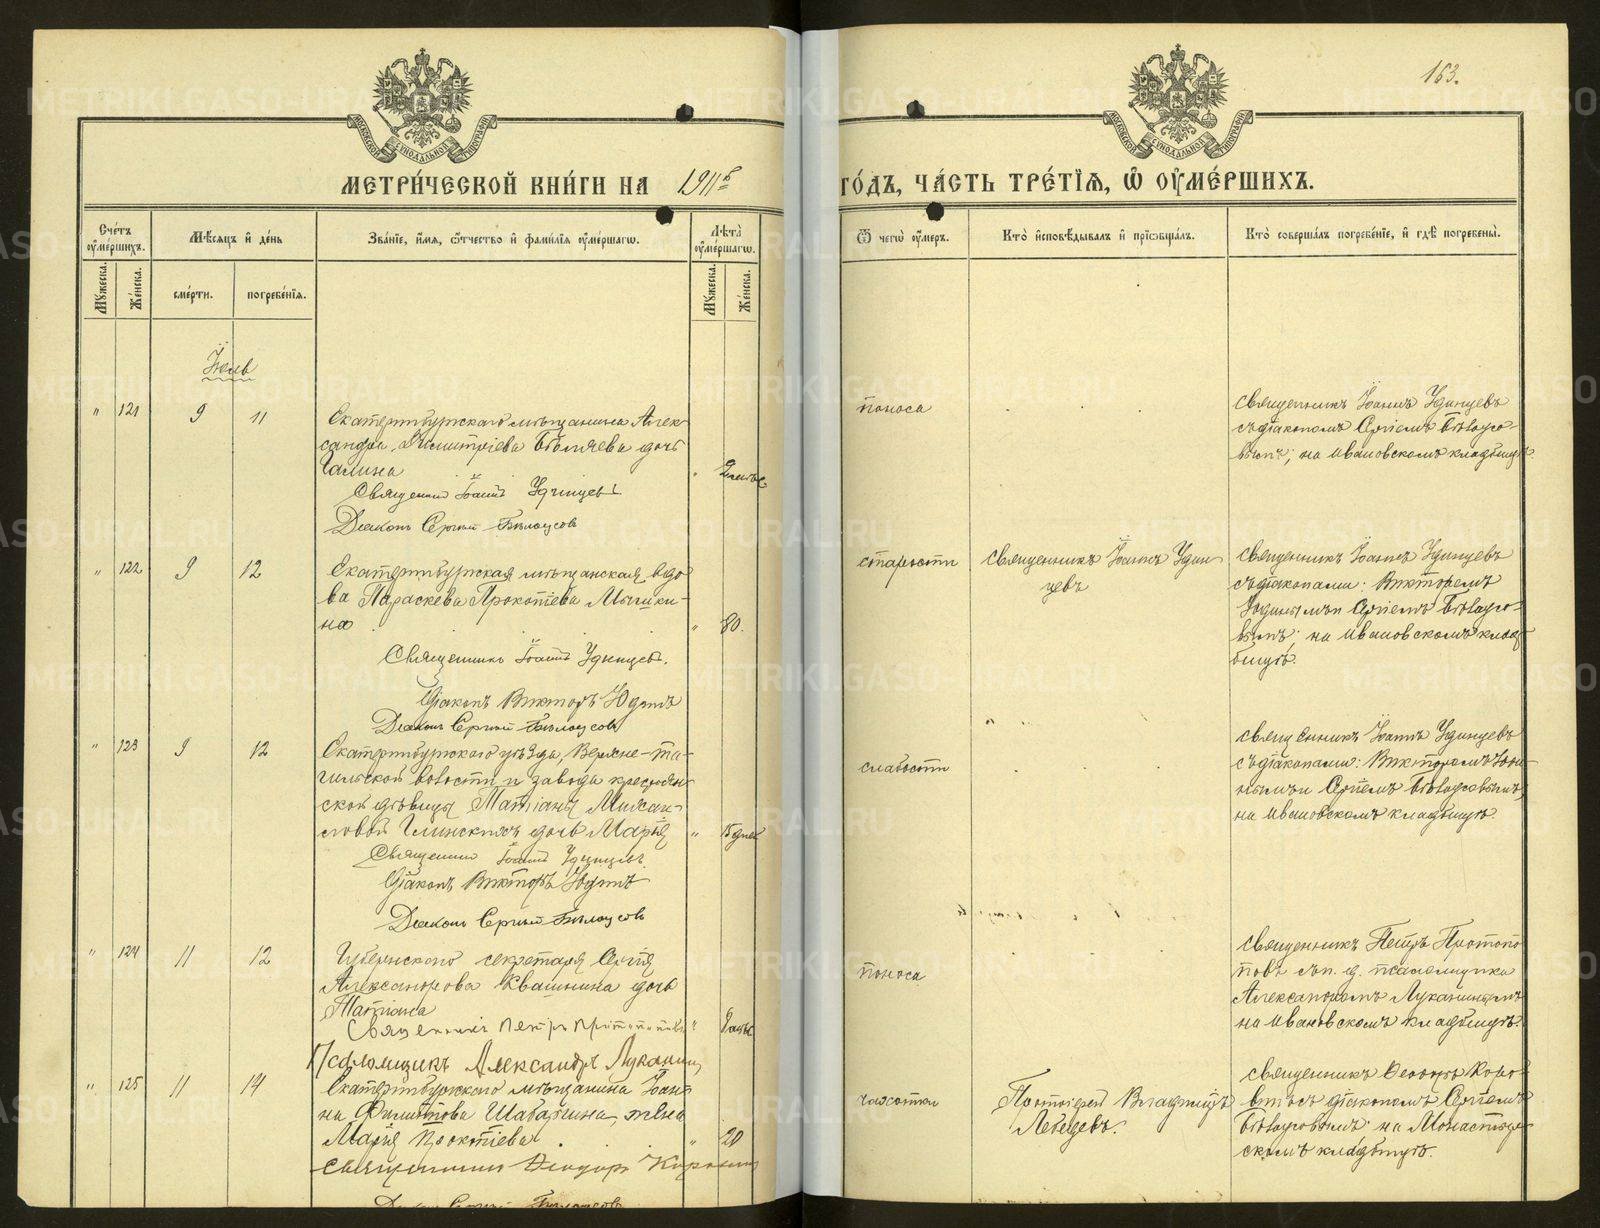 163.
МЕТРИ́ЧЕСКОЙ КНИ́ГИ НА 1911й
ГО́ДЪ, ЧА́СТЬ ТРЕ́ТЇѦ, Ѡ҆ ОУ҆МЕ́РШИХЪ.
Сче́тъ оу҆ме́ршихъ.
Мѣ́сѧцъ и҆ де́нь
Зва́нїе, и҆́мѧ, ѻ҆́тчество и҆ фами́лїѧ оу҆ме́ршагѡ.
Лѣ́то оу҆ме́ршагѡ.
Ѿ чегѡ̀ оу҆́меръ.
Кто̀ и҆сповѣ́дывалъ и҆ прїѡбща́лъ.
Кто̀ соверша́лъ погребе́нїе, и҆ гдѣ̀ погребены̀.
Мꙋ́жеска.
Же́нска.
сме́рти.
погребе́нїѧ.
Мꙋ́жеска.
Же́нска.
Іюль
" 121 9 11
Екатеринбургскаго мѣщанина Алек-
сандра Димитріева Бѣляева дочь
Галина
Священникъ Іоаннъ Удинцевъ
Діаконъ Сергий Бѣлоусовъ
поноса
священникъ Іоаннъ Удинцевъ
съ діакономъ Сергіемъ Бѣлоусо-
вымъ; на Ивановскомъ кладбищѣ.
" 122 9 12
Екатеринбургская мѣщанская вдо-
ва Параскева Прокопіева Мышки-
на " 80.
Священникъ Іоаннъ Удинцевъ.
Діаконъ Викторъ Юдинъ
Діаконъ Сергий Бѣлоусовъ
старости
священникъ Іоаннъ Удин-
цевъ
священникъ Іоаннъ Удинцевъ
съ діаконами: Викторомъ
Юдинымъ и Сергіемъ Бѣлоусо-
вымъ; на Ивановскомъ клад-
бищѣ.
" 123 9 12
Екатеринбургскаго уѣзда, Верхне-та-
гильской волости и завода крестьян-
ской дѣвицы Татіаны Михаи-
ловой Глинскихъ дочь Марія " 15 дней
Священникъ Іоаннъ Удинцевъ
Діаконъ Викторъ Юдинъ
Діаконъ Сергий Бѣлоусовъ
слабости
священникъ Іоаннъ Удинцевъ
съ діаконами: Викторомъ Юди-
нымъ и Сергіемъ Бѣлоусовымъ,
на Ивановскомъ кладбищѣ.
" 124 11 12
Губернскаго секретаря Сергія
Александрова Квашнина дочь
Татіана
Священникъ Петръ Протопоповъ
Псаломщикъ Александръ Луканин
поноса
священникъ Петръ Протопо-
повъ съ и. д. псаломщика
Александромъ Луканинымъ
на Ивановскомъ кладбищѣ.
" 125 11 14
Екатеринбургскаго мѣщанина Іоан-
на Филиппова Шабалина, жена
Марія Прокопіева " 20
священникъ Ѳеодоръ Коровинъ
Діаконъ Сергий Бѣлоусовъ
чахотки
Протоіерей Владиміръ
Лебедевъ.
священникъ Ѳеодоръ Коро-
винъ съ діакономъ Сергіемъ
Бѣлоусовымъ на Монастыр-
скомъ кладбищѣ.
METRIKI.GASO-URAL.RU